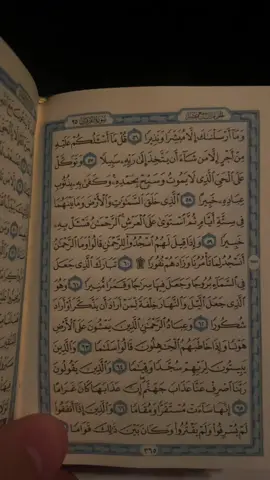 الجزء التاسع عشر
سورة الفرقان ٢٥
وَمَآ أَرْسَلْنَٰكَ إِلَّا مُبَشِّرًا وَنَذِيرًا ٥٦ قُلْ مَآ أَسْـَٔلُكُمْ عَلَيْهِ
مِنْ أَجْرٍ إِلَّا مَن شَآءَ أَن يَتَّخِذَ إِلَىٰ رَبِّهِۦ سَبِيلًا ٥٧ وَتَوَكَّلْ
عَلَى ٱلْحَىِّ ٱلَّذِى لَا يَمُوتُ وَسَبِّحْ بِحَمْدِهِۦ وَكَفَىٰ بِهِۦ بِذُنُوبِ
عِبَادِهِۦ خَبِيرًا ٥٨ ٱلَّذِى خَلَقَ ٱلسَّمَٰوَٰتِ وَٱلْأَرْضَ وَمَا بَيْنَهُمَا
فِى سِتَّةِ أَيَّامٍ ثُمَّ ٱسْتَوَىٰ عَلَى ٱلْعَرْشِ ٱلرَّحْمَٰنُ فَسْـَٔلْ بِهِۦ
خَبِيرًا ٥٩ وَإِذَا قِيلَ لَهُمُ ٱسْجُدُوا۟ لِلرَّحْمَٰنِ قَالُوا۟ وَمَا ٱلرَّحْمَٰنُ
أَنَسْجُدُ لِمَا تَأْمُرُنَا وَزَادَهُمْ نُفُورًا ۩ ٦٠ تَبَارَكَ ٱلَّذِى جَعَلَ
فِى ٱلسَّمَآءِ بُرُوجًا وَجَعَلَ فِيهَا سِرَٰجًا وَقَمَرًا مُّنِيرًا ٦١ وَهُوَ
ٱلَّذِى جَعَلَ ٱلَّيْلَ وَٱلنَّهَارَ خِلْفَةً لِّمَنْ أَرَادَ أَن يَذَّكَّرَ أَوْ أَرَادَ
شُكُورًا ٦٢ وَعِبَادُ ٱلرَّحْمَٰنِ ٱلَّذِينَ يَمْشُونَ عَلَى ٱلْأَرْضِ
هَوْنًا وَإِذَا خَاطَبَهُمُ ٱلْجَٰهِلُونَ قَالُوا۟ سَلَٰمًا ٦٣ وَٱلَّذِينَ
يَبِيتُونَ لِرَبِّهِمْ سُجَّدًا وَقِيَٰمًا ٦٤ وَٱلَّذِينَ يَقُولُونَ
رَبَّنَا ٱصْرِفْ عَنَّا عَذَابَ جَهَنَّمَ إِنَّ عَذَابَهَا كَانَ غَرَامًا
٦٥ إِنَّهَا سَآءَتْ مُسْتَقَرًّا وَمُقَامًا ٦٦ وَٱلَّذِينَ إِذَآ أَنفَقُوا۟
لَمْ يُسْرِفُوا۟ وَلَمْ يَقْتُرُوا۟ وَكَانَ بَيْنَ ذَٰلِكَ قَوَامًا ٦٧
٣٦٥